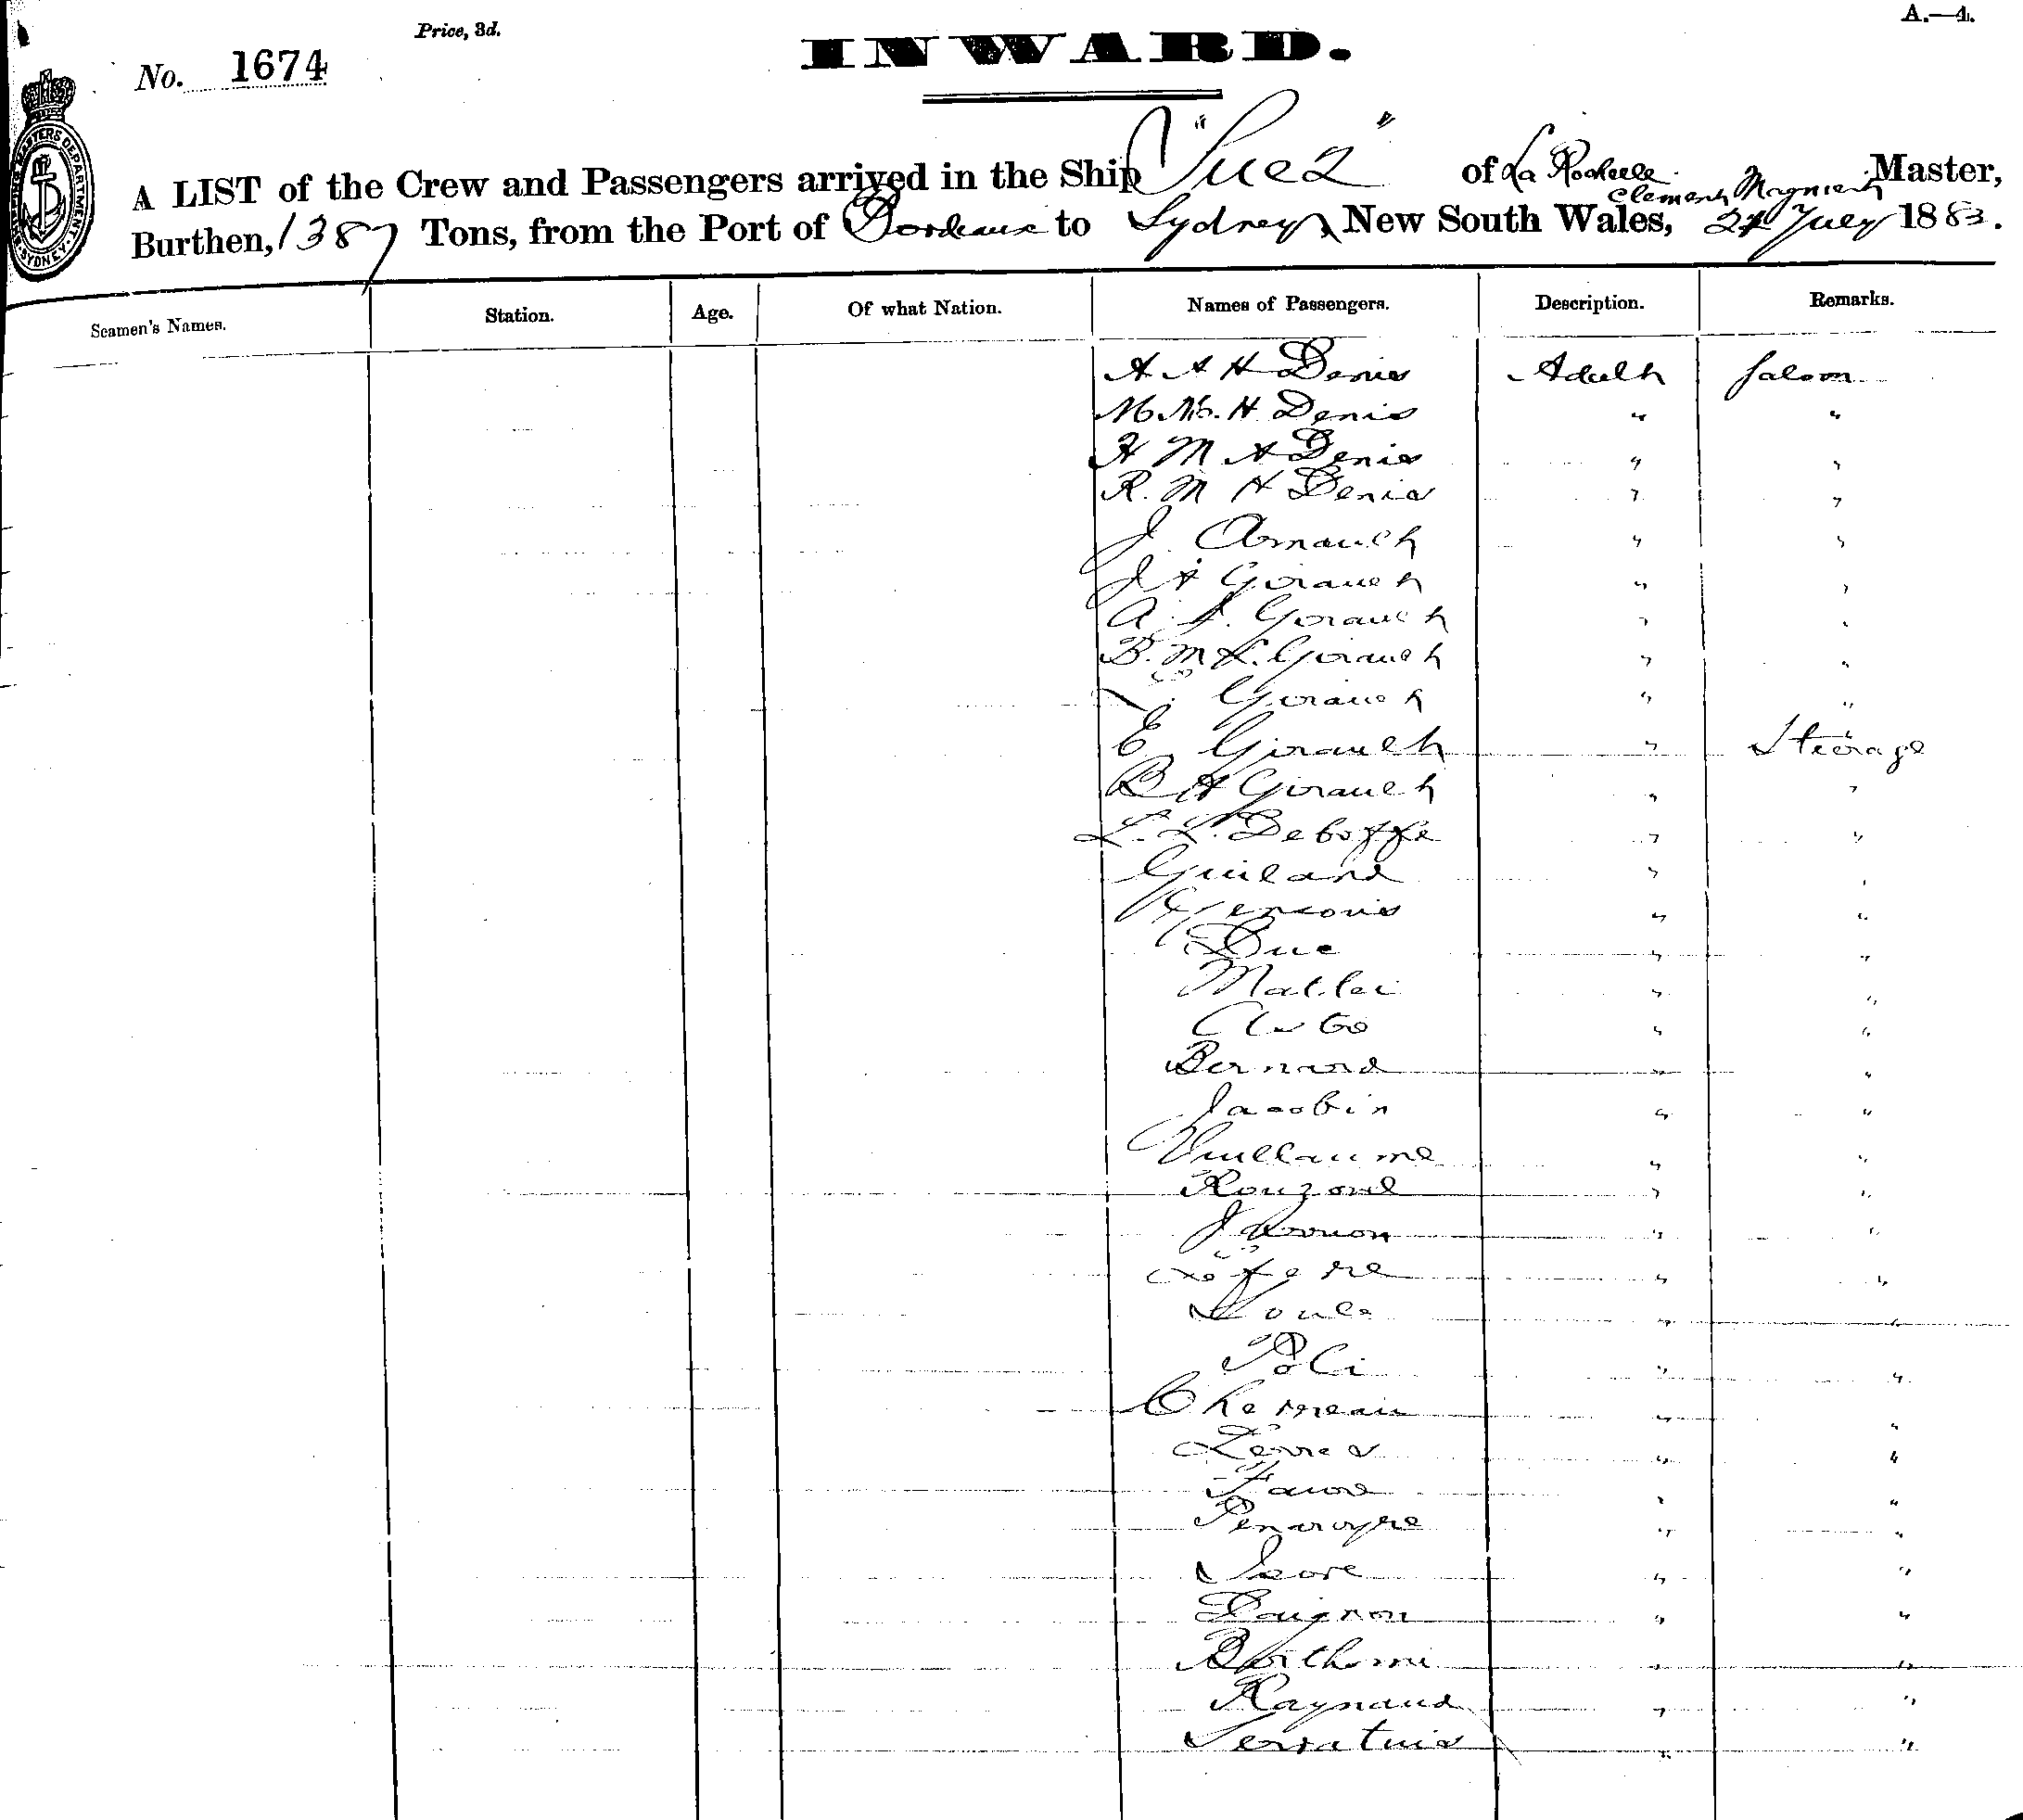 A.—4.
Price, 3d.
INWARD.
No. 1674
SHIPPING MASTERS DEPARTMENT SYDNEY.
A LIST of the Crew and Passengers arrived in the Ship "Suez" of La Rochelle Clement Magnient Master,
Burthen, 1387 Tons, from the Port of Bordeaux to Sydney, New South Wales, 24 July 1883.
Seamen's Names. Station. Age. Of what Nation. Names of Passengers. Description. Remarks.
A A H Denis Adult Saloon
M. M. H Denis " "
H M A Denis " "
R. M H Denis " "
J. Arnault " "
J A Girault " "
A. Girault " "
B. M L. Girault " "
Girault " "
E Girault " Steerage
B A Girault " "
L. L. Deboffe " "
Guiland " "
" "
Duc " "
Mattei " "
" "
Bernard " "
Jacobin " "
Vuillaume " "
Rouzoul " "
" "
Lefevre " "
Soule " "
Poli " "
" "
Terres " "
Faure " "
Penavoyre " "
" "
Daignon " "
Berthomi " "
Raynaud " "
" "